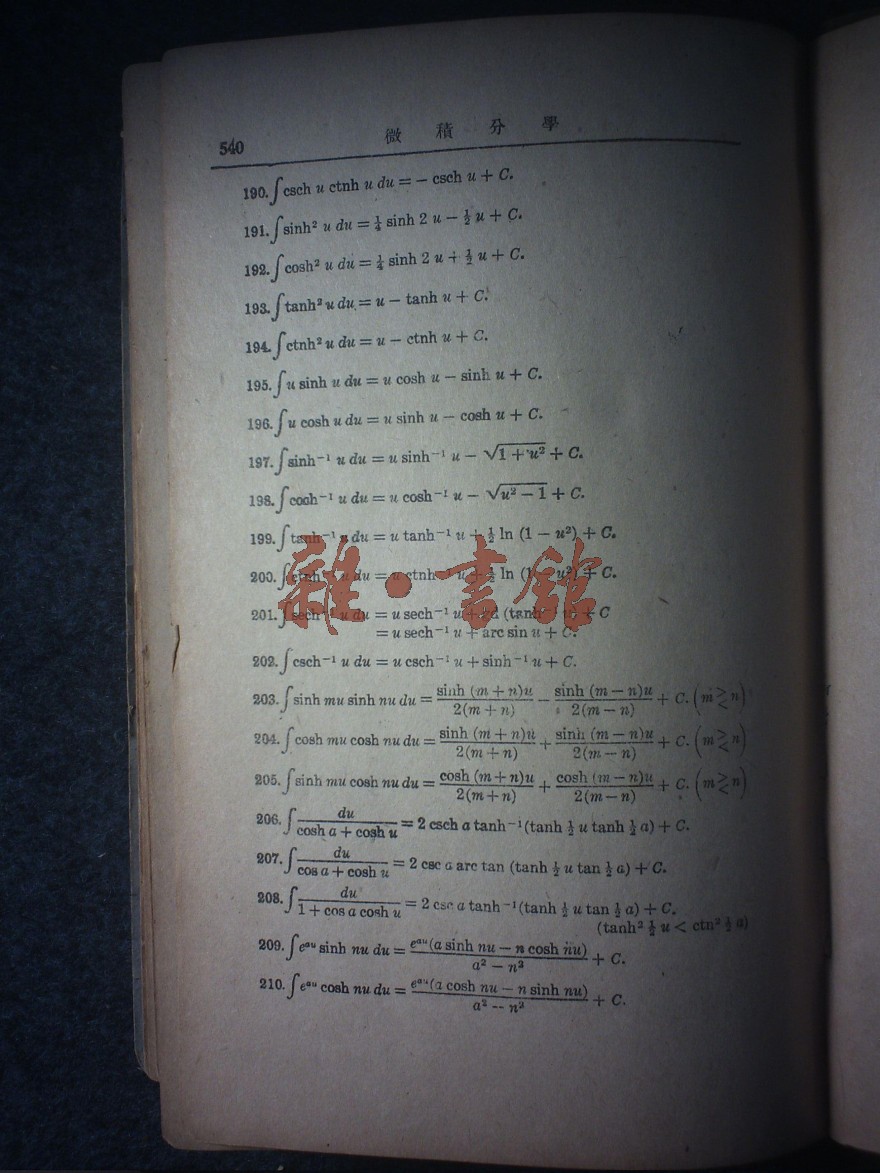 540
微積分學
190. ∫ csch u ctnh u du = − csch u + C.
191. ∫ sinh² u du = ¼ sinh 2 u − ½ u + C.
192. ∫ cosh² u du = ¼ sinh 2 u + ½ u + C.
193. ∫ tanh² u du = u − tanh u + C.
194. ∫ ctnh² u du = u − ctnh u + C.
195. ∫ u sinh u du = u cosh u − sinh u + C.
196. ∫ u cosh u du = u sinh u − cosh u + C.
197. ∫ sinh⁻¹ u du = u sinh⁻¹ u − √(1 + u²) + C.
198. ∫ cosh⁻¹ u du = u cosh⁻¹ u − √(u² − 1) + C.
199. ∫ tanh⁻¹ u du = u tanh⁻¹ u + ½ ln (1 − u²) + C.
雜·書館
200. ∫ ctnh⁻¹ u du = u ctnh⁻¹ u + ½ ln (1 − u²) + C.
201. ∫ sech⁻¹ u du = u sech⁻¹ u + gd (tanh⁻¹ u) + C
= u sech⁻¹ u + arc sin u + C.
202. ∫ csch⁻¹ u du = u csch⁻¹ u + sinh⁻¹ u + C.
203. ∫ sinh mu sinh nu du = sinh (m + n)u / 2(m + n) − sinh (m − n)u / 2(m − n) + C. (m ≷ n)
204. ∫ cosh mu cosh nu du = sinh (m + n)u / 2(m + n) + sinh (m − n)u / 2(m − n) + C. (m ≷ n)
205. ∫ sinh mu cosh nu du = cosh (m + n)u / 2(m + n) + cosh (m − n)u / 2(m − n) + C. (m ≷ n)
206. ∫ du / cosh a + cosh u = 2 csch a tanh⁻¹ (tanh ½ u tanh ½ a) + C.
207. ∫ du / cos a + cosh u = 2 csc a arc tan (tanh ½ u tan ½ a) + C.
208. ∫ du / 1 + cos a cosh u = 2 csc a tanh⁻¹ (tanh ½ u tan ½ a) + C.
(tanh² ½ u < ctn² ½ a)
209. ∫ eᵃᵘ sinh nu du = eᵃᵘ(a sinh nu − n cosh nu) / a² − n² + C.
210. ∫ eᵃᵘ cosh nu du = eᵃᵘ(a cosh nu − n sinh nu) / a² − n² + C.